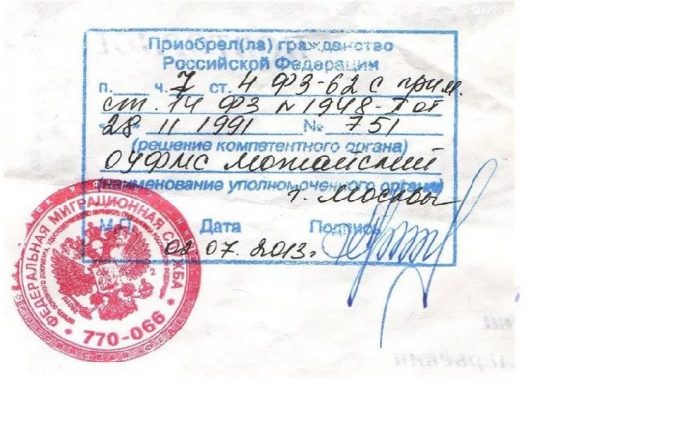 Приобрел(ла) гражданство
Российской Федерации
п.____ ч. 7 ст. 4 ФЗ-62 с прим.
ст. 14 ФЗ N 1948-1 от
"28" 11 1991 № 751
(решение компетентного органа)
ОУФМС Можайский
(наименование уполномоченного органа)
г. Москвы
М.П. Дата Подпись
02 07 2013г
ФЕДЕРАЛЬНАЯ МИГРАЦИОННАЯ СЛУЖБА
770-066